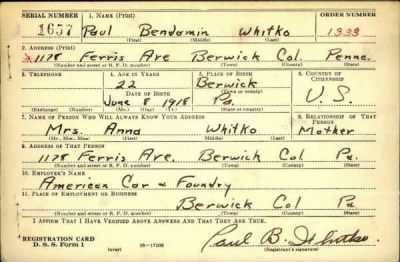 SERIAL NUMBER 1. NAME (Print) ORDER NUMBER
1657 Paul Bendamin Whitko 1333
(First) (Middle) (Last)
2. ADDRESS (Print)
1178 Ferris Are Berwick Col. Penna.
(Number and street or R. F. D. number) (Town) (County) (State)
3. TELEPHONE 4. AGE IN YEARS 5. PLACE OF BIRTH 6. COUNTRY OF CITIZENSHIP
22 Berwick
DATE OF BIRTH (Town or county)
June 8 1918 Pa. U. S.
(Exchange) (Number) (Mo.) (Day) (Yr.) (State or country)
7. NAME OF PERSON WHO WILL ALWAYS KNOW YOUR ADDRESS 8. RELATIONSHIP OF THAT PERSON
Mrs. Anna Whitko Mother
(Mr., Mrs., Miss) (First) (Middle) (Last)
9. ADDRESS OF THAT PERSON
1178 Ferris Ave. Berwick Col Pa.
(Number and street or R. F. D. number) (Town) (County) (State)
10. EMPLOYER'S NAME
American Car & Foundry
11. PLACE OF EMPLOYMENT OR BUSINESS
Berwick Col Pa
(Number and street or R. F. D. number) (Town) (County) (State)
I AFFIRM THAT I HAVE VERIFIED ABOVE ANSWERS AND THAT THEY ARE TRUE.
REGISTRATION CARD Paul B. Whitko
D. S. S. Form 1 (over) 16-17105 (Registrant's signature)